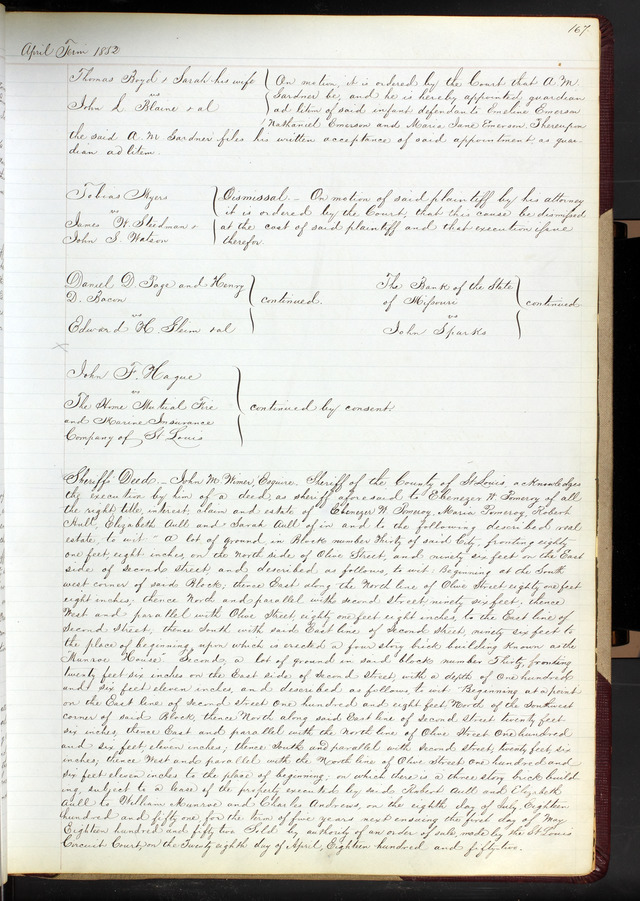 167
April Term 1852
Thomas Boyd & Sarah his wife
vs
John L Blaine & al
On motion, it is ordered by the Court that A. M.
Gardner be, and he is hereby appointed guardian
ad litem of said infant defendants Emeline Emerson
Nathaniel Emerson and Maria Jane Emerson. Thereupon
the said A. M. Gardner files his written acceptance of said appointment as guar-
dian ad litem.
Tobias Myers
vs
James W. Stedman &
John S. Watson
Dismissal. - On motion of said plaintiff by his attorney
it is ordered by the Court, that this cause be dismissed
at the cost of said plaintiff and that execution issue
therefor.
Daniel D. Page and Henry
D. Bacon
vs
Edward H. Gleim & al
continued.
The Bank of the State
of Missouri
vs
John Sparks
continued
John F. Hague
vs
The Home Mutual Fire
and Marine Insurance
Company of St Louis
continued by consent
Sheriffs Deed. - John M. Wimer, Esquire, Sheriff of the County of St Louis, acknowledges
the execution by him of a deed, as sheriff aforesaid to Ebenezer W. Pomeroy of all
the right title, interest, claim and estate of Ebenezer W Pomeroy, Maria Pomeroy, Robert
Aull, Elizabeth Aull and Sarah Aull of in and to the following described real
estate, to wit - a lot of ground in Block number Thirty of said City, fronting eighty
one feet, eight inches, on the North side of Olive Street, and ninety six feet on the East
side of Second Street and described as follows, to wit: Beginning at the South
west corner of said Block, thence East along the North line of Olive Street eighty one feet
eight inches; thence North and parallel with second street, ninety six feet, thence
West and parallel with Olive Street, eighty one feet eight inches, to the East line of
Second Street, thence South with said East line of Second Street, ninety six feet to
the place of beginning, upon which is erected a four story brick building known as the
Munroe House. Second, a lot of ground in said block number Thirty, fronting
twenty feet six inches on the East side of Second Street with a depth of One hundred
and six feet eleven inches, and described as follows, to wit: Beginning at a point
on the East line of Second street One hundred and eight feet, North of the Southwest
corner of said Block, thence North along said East line of Second Street twenty feet
six inches, thence East and parallel with the North line of Olive Street One hundred
and six feet eleven inches; thence South and parallel with Second street, twenty feet, six
inches, thence West and parallel with the North line of Olive Street one hundred and
six feet eleven inches to the place of beginning; on which there is a three story brick build
ing, subject to a lease of the property executed by said Robert Aull and Elizabeth
Aull to William Munroe and Charles Andrews, on the eighth day of July Eighteen
hundred and fifty one for the term of five years next ensuing the first day of May
Eighteen hundred and fifty two Sold by authority of an order of sale, made by the St Louis
Circuit Court, on the Twenty eighth day of April, Eighteen hundred and fifty two.